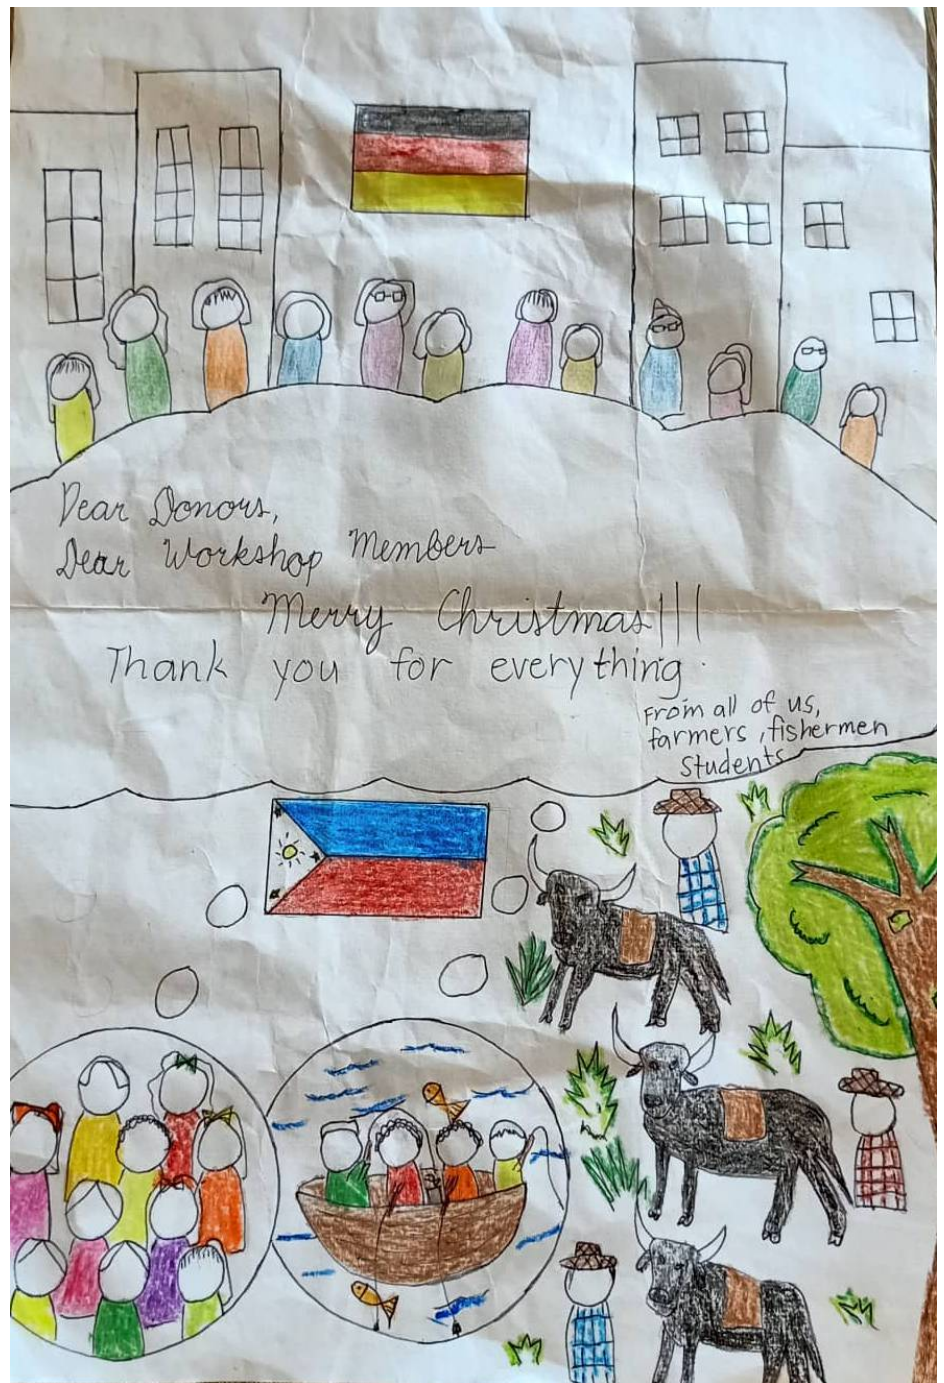 Dear Donors,
Dear Workshop Members
Merry Christmas!!!
Thank you for everything.
From all of us,
farmers, fishermen
students